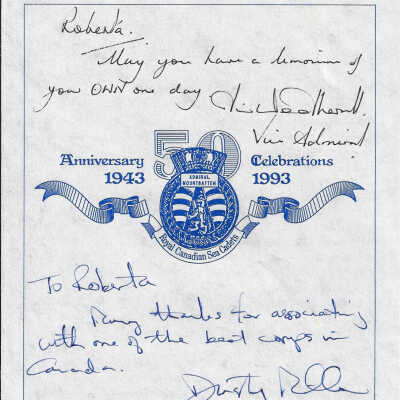 Roberta.
May you have a memoriam of
your OWN one day
Vice Admiral
50
Anniversary Celebrations
1943 1993
ADMIRAL
MOUNTBATTEN
Royal Canadian Sea Cadets
To Roberta
Many thanks for associating
with one of the best corps in
Canada.
Dusty